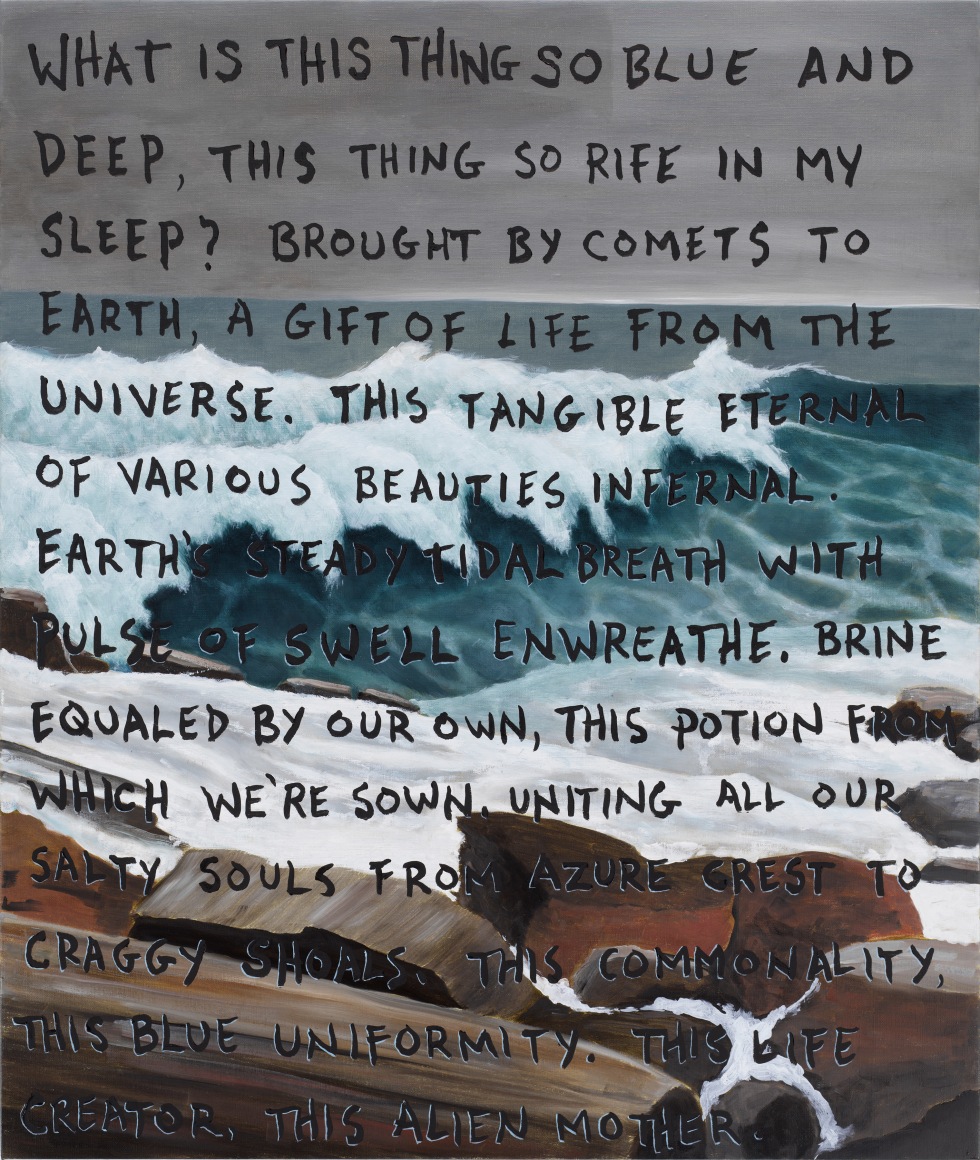 WHAT IS THIS THING SO BLUE AND
DEEP, THIS THING SO RIFE IN MY
SLEEP? BROUGHT BY COMETS TO
EARTH, A GIFT OF LIFE FROM THE
UNIVERSE. THIS TANGIBLE ETERNAL
OF VARIOUS BEAUTIES INFERNAL.
EARTH'S STEADY TIDAL BREATH WITH
PULSE OF SWELL ENWREATHE. BRINE
EQUALED BY OUR OWN, THIS POTION FROM
WHICH WE'RE SOWN. UNITING ALL OUR
SALTY SOULS FROM AZURE CREST TO
CRAGGY SHOALS. THIS COMMONALITY,
THIS BLUE UNIFORMITY. THIS LIFE
CREATOR, THIS ALIEN MOTHER.